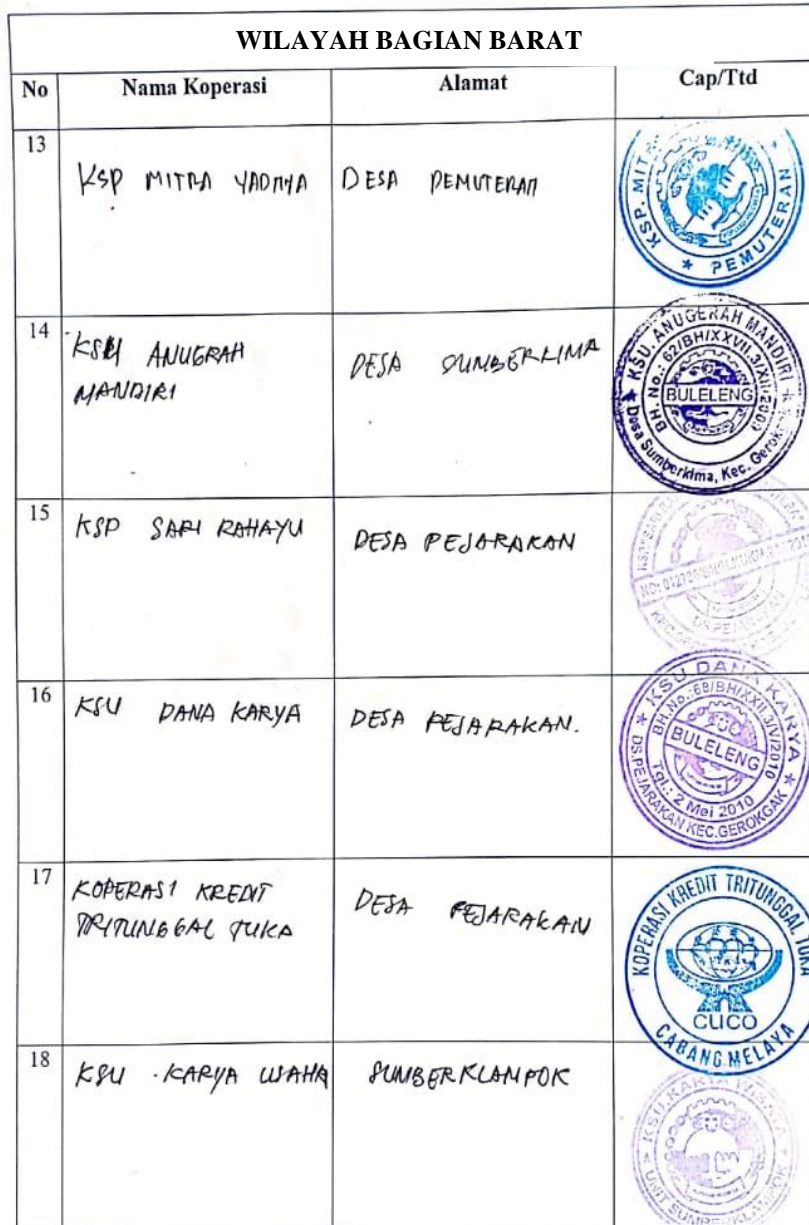 WILAYAH BAGIAN BARAT
No Nama Koperasi Alamat Cap/Ttd
13 KSP MITRA YADNYA DESA PEMUTERAN
KSP. MITRA
* PEMUTERAN
14 KSU ANUGRAH MANDIRI DESA SUMBERKIMA
KSU. ANUGERAH MANDIRI
BH. No.: 62/BH/XXVII.3/XII/2009
BULELENG
Desa Sumberkima, Kec. Gerok
15 KSP SARI RAHAYU DESA PEJARAKAN
16 KSU DANA KARYA DESA PEJARAKAN.
KSU DANA KARYA
BH.No.:68/BH/XXII.3/V/2010
BULELENG
Tgl.: 2 Mei 2010
DS.PEJARAKAN KEC.GEROKGAK
17 KOPERASI KREDIT TRITUNGGAL TUKA DESA PEJARAKAN
KOPERASI KREDIT TRITUNGGAL TUKA
CUCO
CABANG MELAYA
18 KSU . KARYA USAHA SUMBERKLAMPOK
KSU.KARYA
UNIT SUMBERKLAMPOK